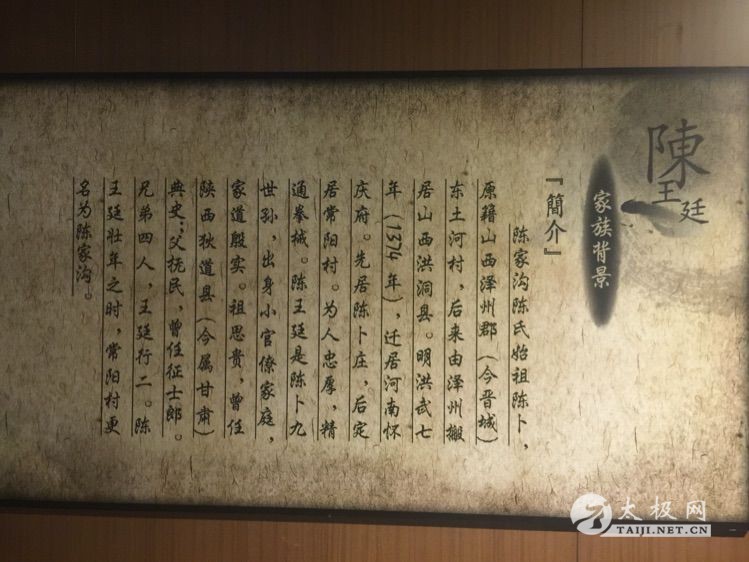 陳王廷
家族背景
『簡介』
陈家沟陈氏始祖陈卜，
原籍山西泽州郡（今晋城）
东土河村，后来由泽州搬
居山西洪洞县。明洪武七
年（1374年），迁居河南怀
庆府。先居陈卜庄，后定
居常阳村。为人忠厚，精
通拳械。陈王廷是陈卜九
世孙，出身小官僚家庭，
家道殷实。祖思贵，曾任
陕西狄道县（今属甘肃）
典史；父抚民，曾任征士郎。
兄弟四人，王廷行二。陈
王廷壮年之时，常阳村更
名为陈家沟。
太极网
TAIJI.NET.CN